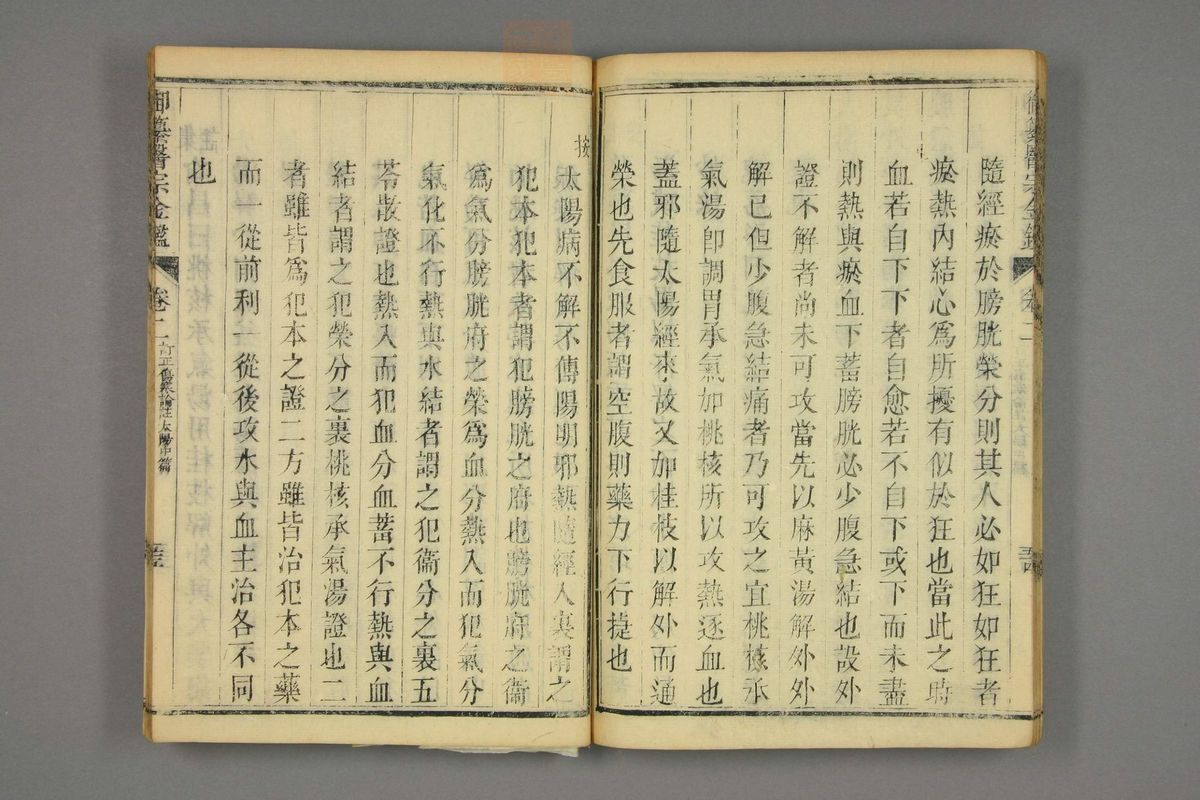 隨經瘀於膀胱榮分則其人必如狂如狂者
瘀熱內結心爲所擾有似於狂也當此之時
血若自下下者自愈若不自下或下而未盡
則熱與瘀血下蓄膀胱必少腹急結也設外
證不解者尚未可攻當先以麻黃湯解外外
解已但少腹急結痛者乃可攻之宜桃核承
氣湯卽調胃承氣加桃核所以攻熱逐血也
蓋邪隨太陽經來故又加桂枝以解外而通
榮也先食服者謂空腹則藥力下行捷也
按
太陽病不解不傳陽明邪熱隨經入裏謂之
犯本犯本者謂犯膀胱之府也膀胱府之衞
爲氣分膀胱府之榮爲血分熱入而犯氣分
氣化不行熱與水結者謂之犯衞分之裏五
苓散證也熱入而犯血分血蓄不行熱與血
結者謂之犯榮分之裏桃核承氣湯證也二
者雖皆爲犯本之證二方雖皆治犯本之藥
而一從前利一從後攻水與血主治各不同
也
御纂醫宗金鑑
卷二
訂正傷寒論註太陽中篇